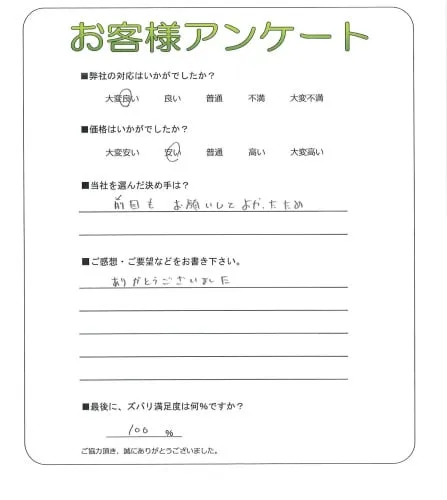 お客様アンケート
■弊社の対応はいかがでしたか？
大変良い 良い 普通 不満 大変不満
■価格はいかがでしたか？
大変安い 安い 普通 高い 大変高い
■当社を選んだ決め手は？
前回も お願いしてよかったため
■ご感想・ご要望などをお書き下さい。
ありがとうございました
■最後に、ズバリ満足度は何%ですか？
100 %
ご協力頂き、誠にありがとうございました。